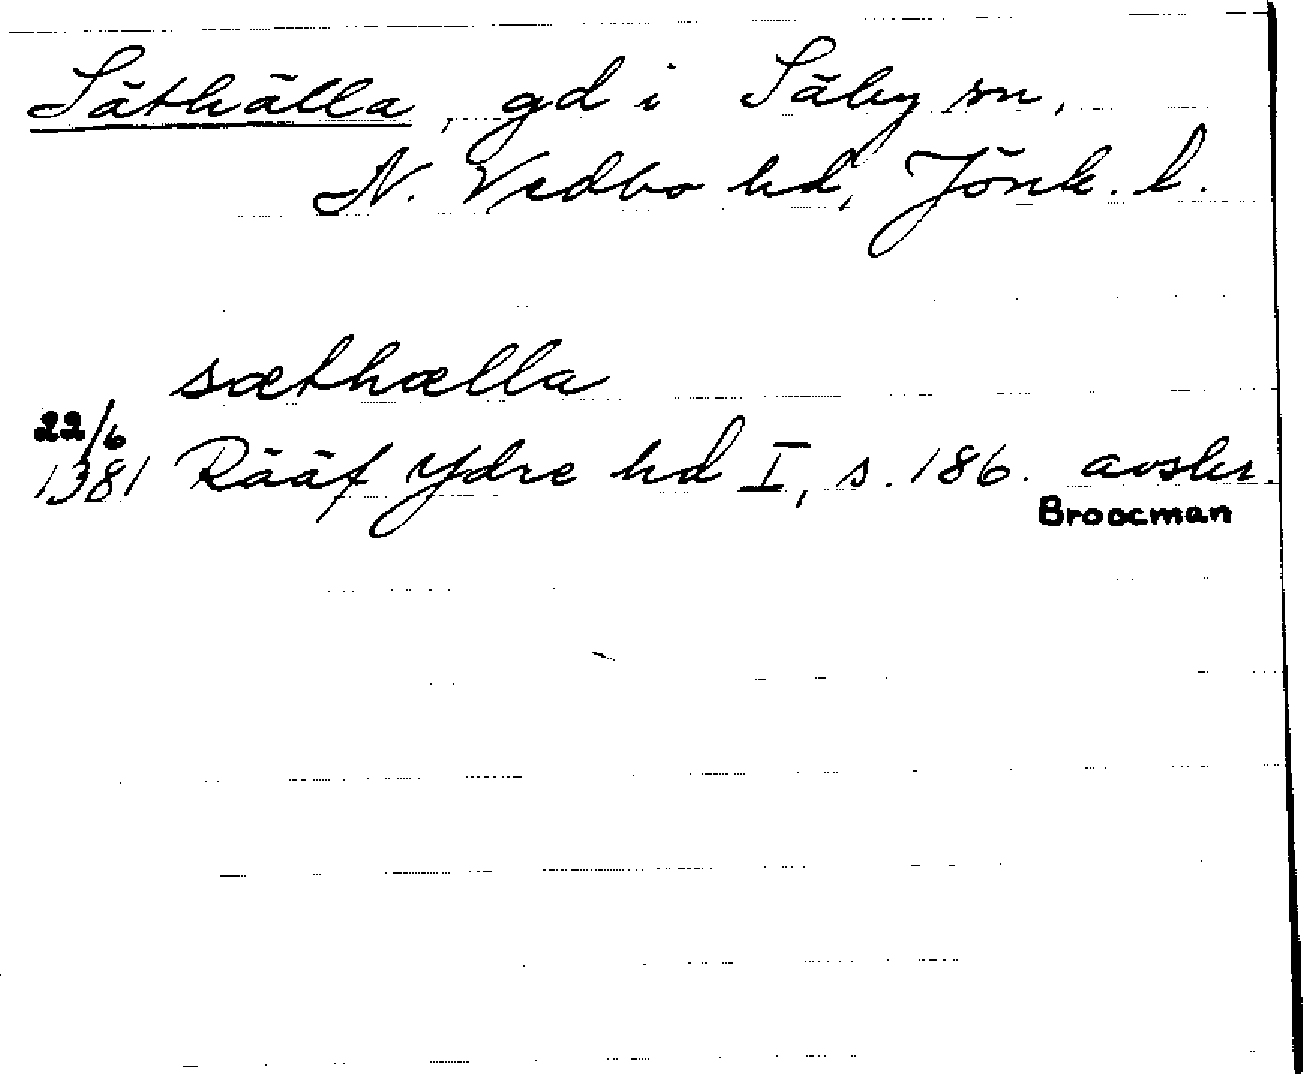 Säthälla, gd i Säby sn,
N. Vedbo hd, Jönk. l.
sæthælla
22/6
1381 Rääf Ydre hd I, s. 186. avskr.
Broocman